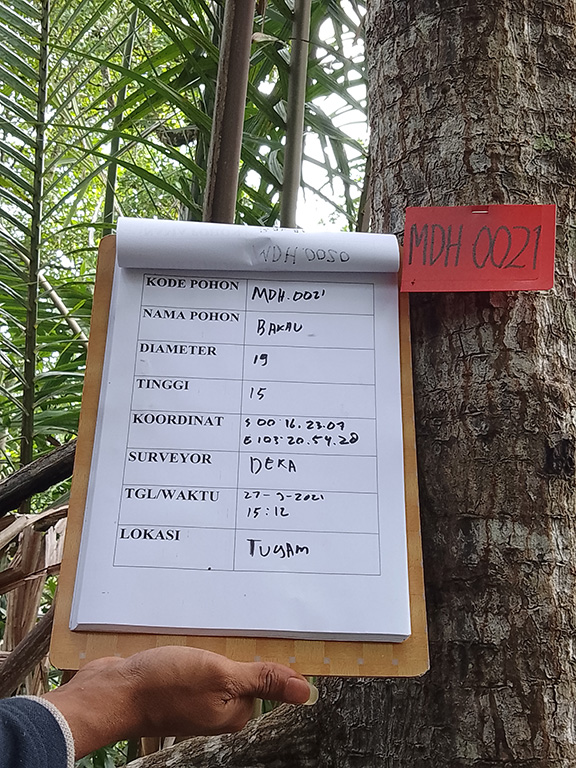 MDH 0021
MDH 0050
KODE POHON MDH.0021
NAMA POHON BAKAU
DIAMETER 19
TINGGI 15
KOORDINAT S 00.16.23.07
E 103.20.54.28
SURVEYOR DEKA
TGL/WAKTU 27-3-2021
15:12
LOKASI TUYAM